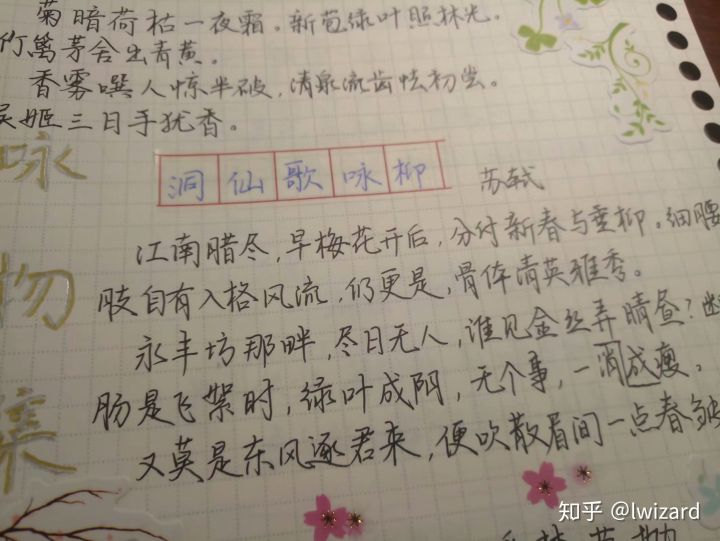 菊暗荷枯一夜霜。新苞绿叶照林光。
竹篱茅舍出青黄。
香雾噀人惊半破,清泉流齿怯初尝。
吴姬三日手犹香。
咏物集
洞仙歌咏柳 苏轼
江南腊尽,早梅花开后,分付新春与垂柳。细腰
肢自有入格风流,仍更是,骨体清英雅秀。
永丰坊那畔,尽日无人,谁见金丝弄晴昼?
肠是飞絮时,绿叶成阴,无个事,一消成瘦。
又莫是东风逐君来,便吹散眉间一点春皱
知乎 @lwizard